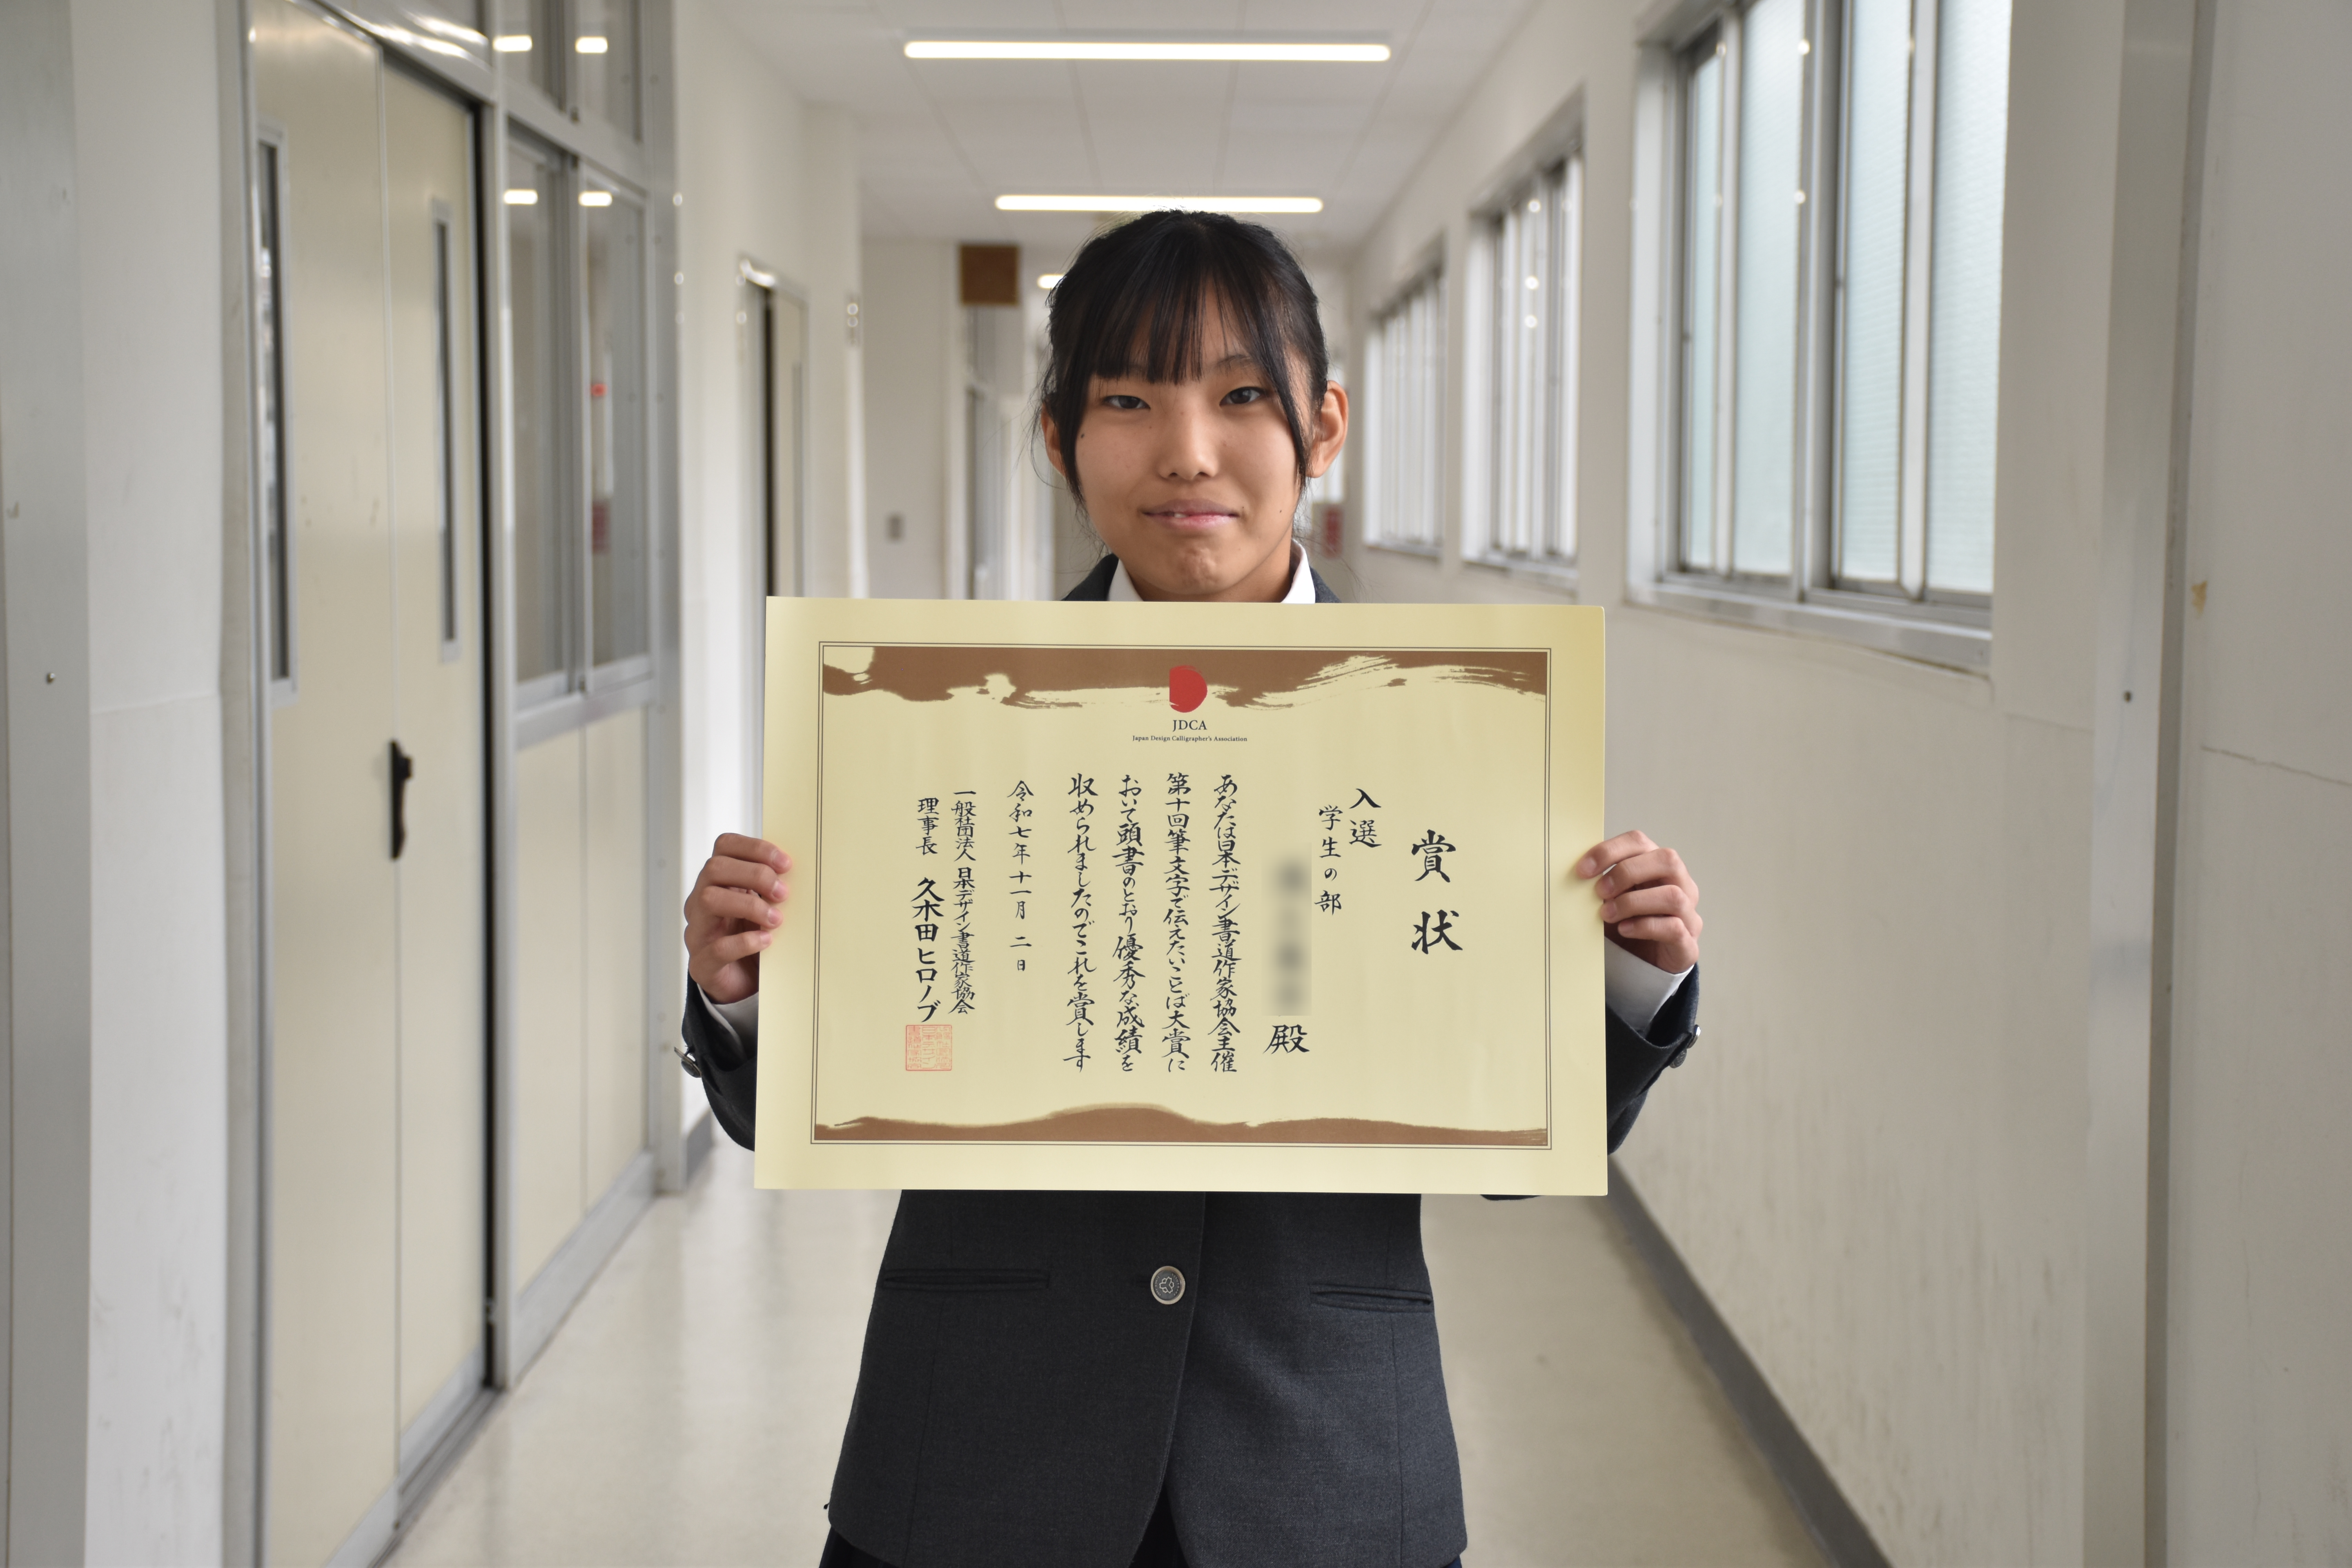 JDCA
Japan Design Calligrapher's Association
賞状
入選
学生の部
殿
あなたは日本デザイン書道作家協会主催
第十回筆文字で伝えたいことば大賞に
おいて頭書のとおり優秀な成績を
収められましたのでこれを賞します
令和七年十一月二日
一般社団法人日本デザイン書道作家協会
理事長 久木田ヒロノブ